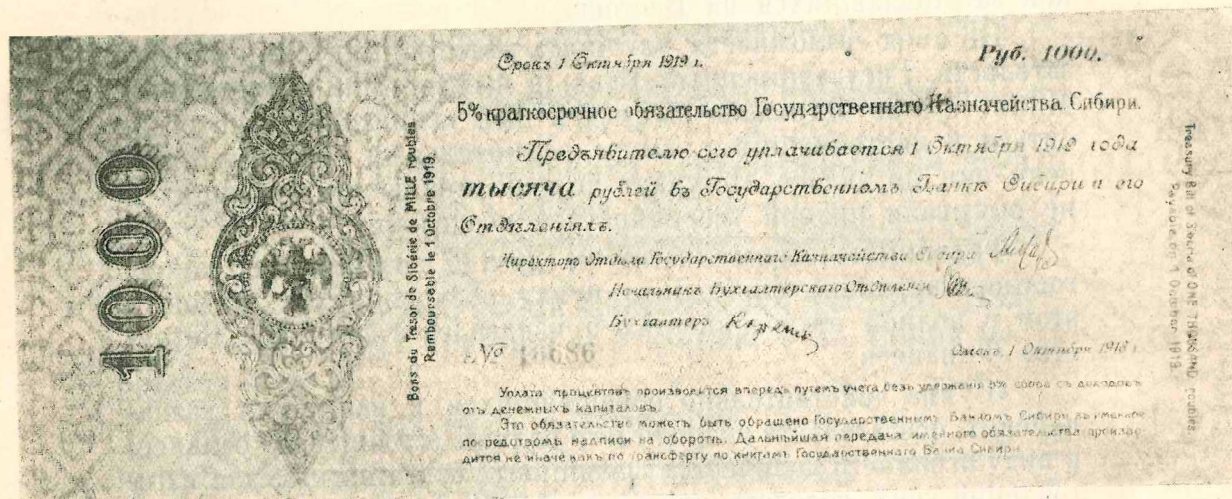 1000
Bons du Tresor de Sibérie de MILLE roubles
Remboursable le 1 Octobre 1919.
Срокъ 1 Октября 1919 г.
Руб. 1000.
5% краткосрочное обязательство Государственнаго Казначейства Сибири.
Предъявителю сего уплачивается 1 Октября 1919 года
тысяча рублей въ Государственномъ Банкѣ Сибири и его
Отдѣленіяхъ.
Директоръ Отдѣла Государственнаго Казначейства Сибири
Начальникъ Бухгалтерскаго Отдѣленія
Бухгалтеръ
№ 18686
Омскъ, 1 Октября 1918 г.
Уплата процентовъ производится впередъ путемъ учета, безъ удержанія 5% сбора съ доходовъ
отъ денежныхъ капиталовъ.
Это обязательство можетъ быть обращено Государственнымъ Банкомъ Сибири въ именное
посредствомъ надписи на оборотѣ. Дальнѣйшая передача именного обязательства производится
дится не иначе какъ по трансферту по книгамъ Государственнаго Банка Сибири.
Treasury Bill of Siberia of ONE THOUSAND roubles
Payable on 1 October 1919.